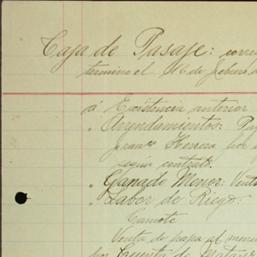 Caja de Pasaje: corre
termino el 16 de febrero d
á Existencia anterior
" Arrendamientos: P
Franco Herrera por
según contrato
" Ganado Menor: Vent
" Labor de Riego:
Camote
Venta de papa al men
por Cuenta de